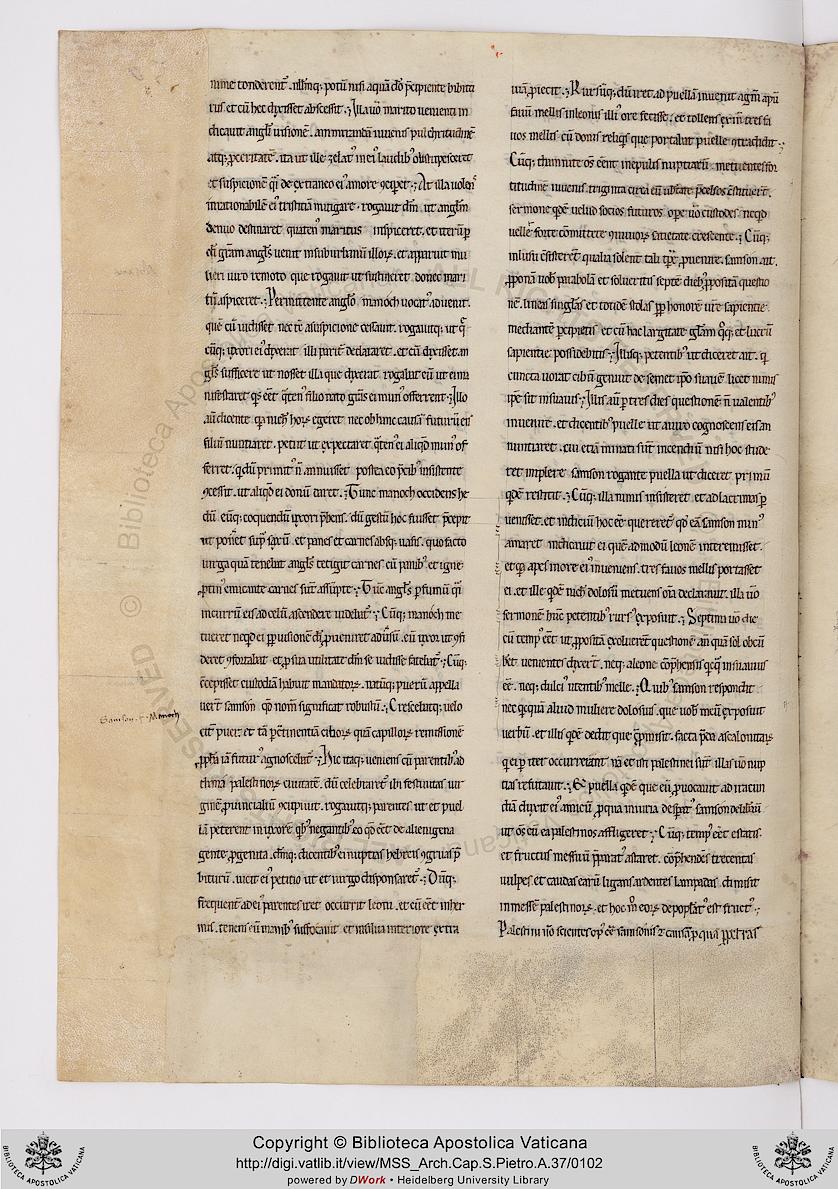 nime tonderent᷑. nihilq; potũ nisi aquã
rus et cũ hec dixisset abscessit. Illa uo᷑ marito uenienti in
dicauit angl᷑i uisionẽ. ammirandã iuuenis pulchritudinẽ
atq; ꝓceritatẽ. ita ut ille zelat᷑ in ei᷑ laudib᷑ obstupesceret
et suspicionẽ de extraneo ei᷑ amore
irrationabilẽ ei᷑ tristitiã mitigare. rogauit dñm ut angl᷑m
denuo destinaret quaten᷑ maritus inspiceret. et iterũ
di grãm angl᷑s uenit in suburbanũ illoꝝ. et apparuit mu
lieri uiro remoto que rogauit ut sustineret donec mari
tũ aspiceret. Permittente angl᷑o manoch uocat᷑ aduenit.
quẽ cũ uidisset nec tc̃ a suspicione cessauit. rogauitq; ut
cũq; uxori ei᷑ dixerat illi pariter declararet. et cũ dixisset an
gl᷑s sufficere ut nosset illa que dixerat rogabat eũ ut eum
nifestaret q᷑s eẽt filio nato grãs ei mun᷑ offerrent. Illo
aũt dicente nec ob hanc causã futurũ ei᷑
filiũ nuntiaret. petiit ut expectaret ei aliqd᷑ mun᷑ of
ferret. primit᷑ ñ annuisset postea eo insistente
ut aliqd᷑ ei donũ daret. Tunc manoch occidens he
dũ. eũq; coquendũ uxori p̃bens. dũ gestũ hoc fuisset p̃cepit
ut poneret sup᷑ saxũ. et panes et carnes absq; uasis. quo facto
uirga quã tenebat angl᷑s tetigit carnes cũ panib᷑ et igne
emicante carnes sunt assũpte. Tũc angl᷑s ꝑ fumũ
in currũ eis ad celũ ascendere uidebat᷑. Cũq; manoch me
tueret ne ei ꝑ uisionẽ di ꝓueniret aduersũ. eũ uxor ut
deret cõfortabat et ꝓ sua utilitate dñm se uidisse
cẽpisset custodiã habuit mandatoꝝ. natũq; puerũ appella
uerunt samson qd᷑ nom̃ significat robustũ. Crescebatq; uelo
citer puer et tã ꝑ continentiã ciboꝝ quã capilloꝝ remissionẽ
ꝓpheta iã futur᷑ agnoscebat᷑. Hic itaq; ueniens cũ parentib᷑ ad
thmna palestinoꝝ ciuitatẽ. dũ celebraretur ibi festiuitas uir
ginẽ ꝓuincialiũ cõcupiuit. rogauitq; parentes ut et puel
lã peterent in uxore. quib᷑ negantib᷑ eo qd᷑ eẽt de alienigena
gente ꝓgenita. dicentib᷑ ei nuptias hebreis congruas
biturũ. uicit ei᷑ petitio ut et uirgo disponsaret᷑. Dũq;
frequenter ad ei᷑ parentes iret occurrit leoni. et cũ eẽt iner
mis. tenens eũ manib᷑ suffocauit et in silua interiore extra
uiã ꝓiecit. Rursusq; dũ iret ad puellã inuenit agm̃ apũ
fauũ mellis in leonis illi᷑ ore fecisse. et tollens exinde tres fa
uos mellis cũ donis reliquis que portabat puelle contradidit.
Cũq; thamnite oẽs eẽnt in epulis nuptiarũ. metuentes for
titudinẽ iuuenis triginta circa eũ p̃celsos cõstituerunt.
sermone quidẽ uelud socios futuros. ope uo᷑ custodes neqd᷑
uellet forte cõmittere satietate crescente. Cũq;
in lusu cõsisterent qualia solent tali tp̃r ꝓuenire. samson ait.
ꝓponã uob᷑ parabolã et soluentis septẽ dieb᷑ ꝓpositã questio
nẽ. lineas singulas et totidẽ stolas ꝓp᷑ honorẽ ure᷑ sapientie
mechantẽ percipietis et cũ hac largitate gl᷑am quoq; et lucrũ
sapientie possidebitis. Illisq; petentib᷑ ut diceret ait.
cuncta uorat cibũ genuit de semet ip̃o suauẽ licet nimis
ipẽ sit insuauis. Illis aũt ꝑ tres dies questionẽ ñ ualentib᷑
inuenire. et dicentib᷑ puelle ut a uiro cognoscens eis an
nuntiaret. cui etiã minati sunt incendiũ nisi hoc stude
ret implere samson rogante puella ut diceret primũ
quidẽ restitit. Cũq; illa nimis insisteret et ad lacrimas ꝑ
uenisset. et indiciũ hoc eẽ quereret᷑ qd᷑ eã samson min᷑
amaret indicauit ei quẽadmodũ leonẽ interemisset.
et qd᷑ apes in ore ei᷑ inueniens. tres fauos mellis portasset
ei. et ille quidẽ nichil dolosũ metuens om̃a declarauit. illa uo᷑
sermonẽ hunc petentib᷑ rurs᷑ exposuit. Septimi uo᷑ die
cũ temp᷑ eẽt ut ꝓpositã exoluerent questionẽ. an quã sol occũ
beret uenientes dixerunt. neq; a leone cõphensis quicquã insuauius
eẽ. neq; dulci᷑ utentib᷑ melle. Quib᷑ samson respondit
nec quicquã aliud muliere dolosius. que uob᷑ meũ exposuit
uerbũ. et illis quidẽ dedit que ꝓmisit. facta p̃da ascalonitaꝝ
qui ei in iter occurrerant. nã et isti palestini sunt. illas uo᷑ nup
tias refutauit. Et puella quidẽ que eũ ꝓuocauit ad iracun
diã duxit ei᷑ amicũ ꝓ qua iniuria desperat᷑ samson deliberauit
ut oẽs cũ ea palestinos affligeret. Cũq; temp᷑ eẽt estatis.
et fructus messiũ p̃parat᷑ astaret. cõphendens trecentas
uulpes et caudas earũ ligans ardentes lampadas dimisit
in messẽ palestinoꝝ. et hoc mõ eoꝝ depopulat᷑ est fruct᷑.
Palestini uo᷑ scientes op᷑ eẽ samsonis et causã ꝓ qua
Samson. f. Manoch
Copyright © Biblioteca Apostolica Vaticana
http://digi.vatlib.it/view/MSS_Arch.Cap.S.Pietro.A.37/0102
powered by DWork • Heidelberg University Library